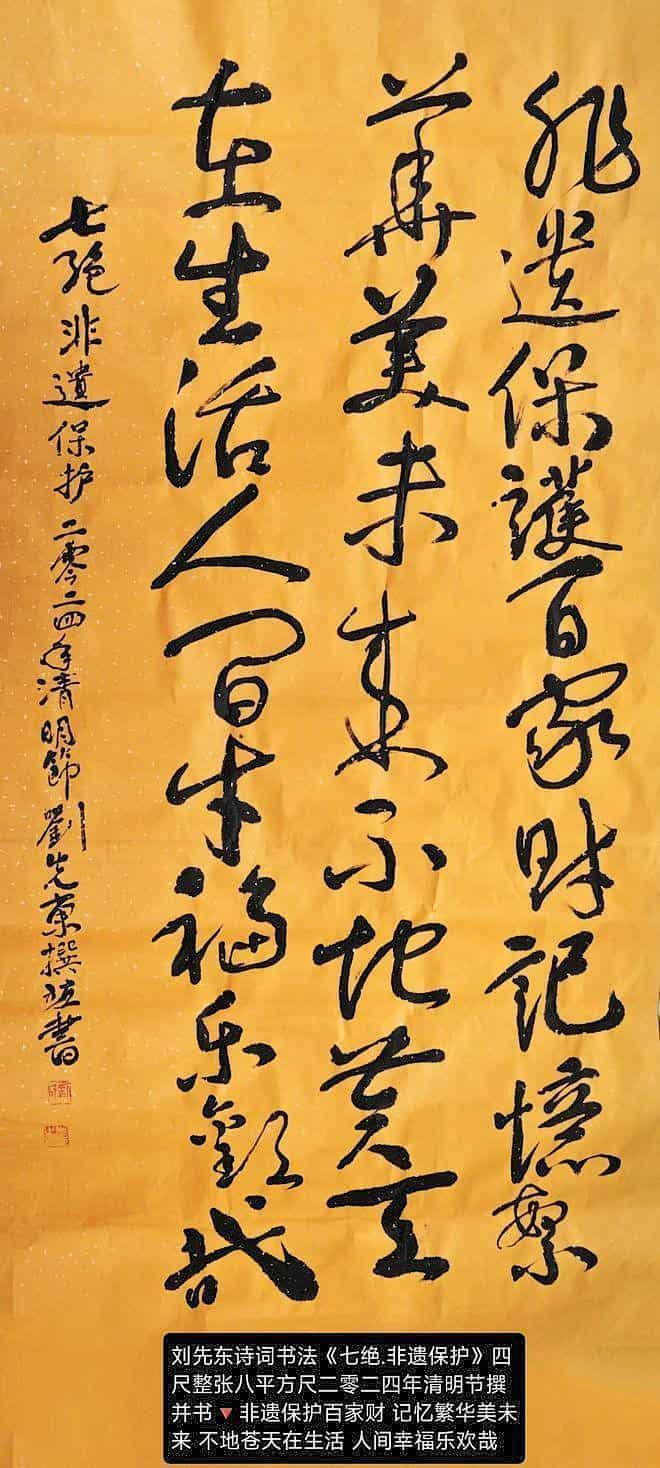 非遗保護百家财記憶繁
華美未来不地苍天
在生活人间幸福乐歡哉
七绝非遺保护二零二四年清明節劉先東撰並書
刘先东诗词书法《七绝.非遗保护》四
尺整张八平方尺二零二四年清明节撰
并书🔻非遗保护百家财 记忆繁华美未
来 不地苍天在生活 人间幸福乐欢哉